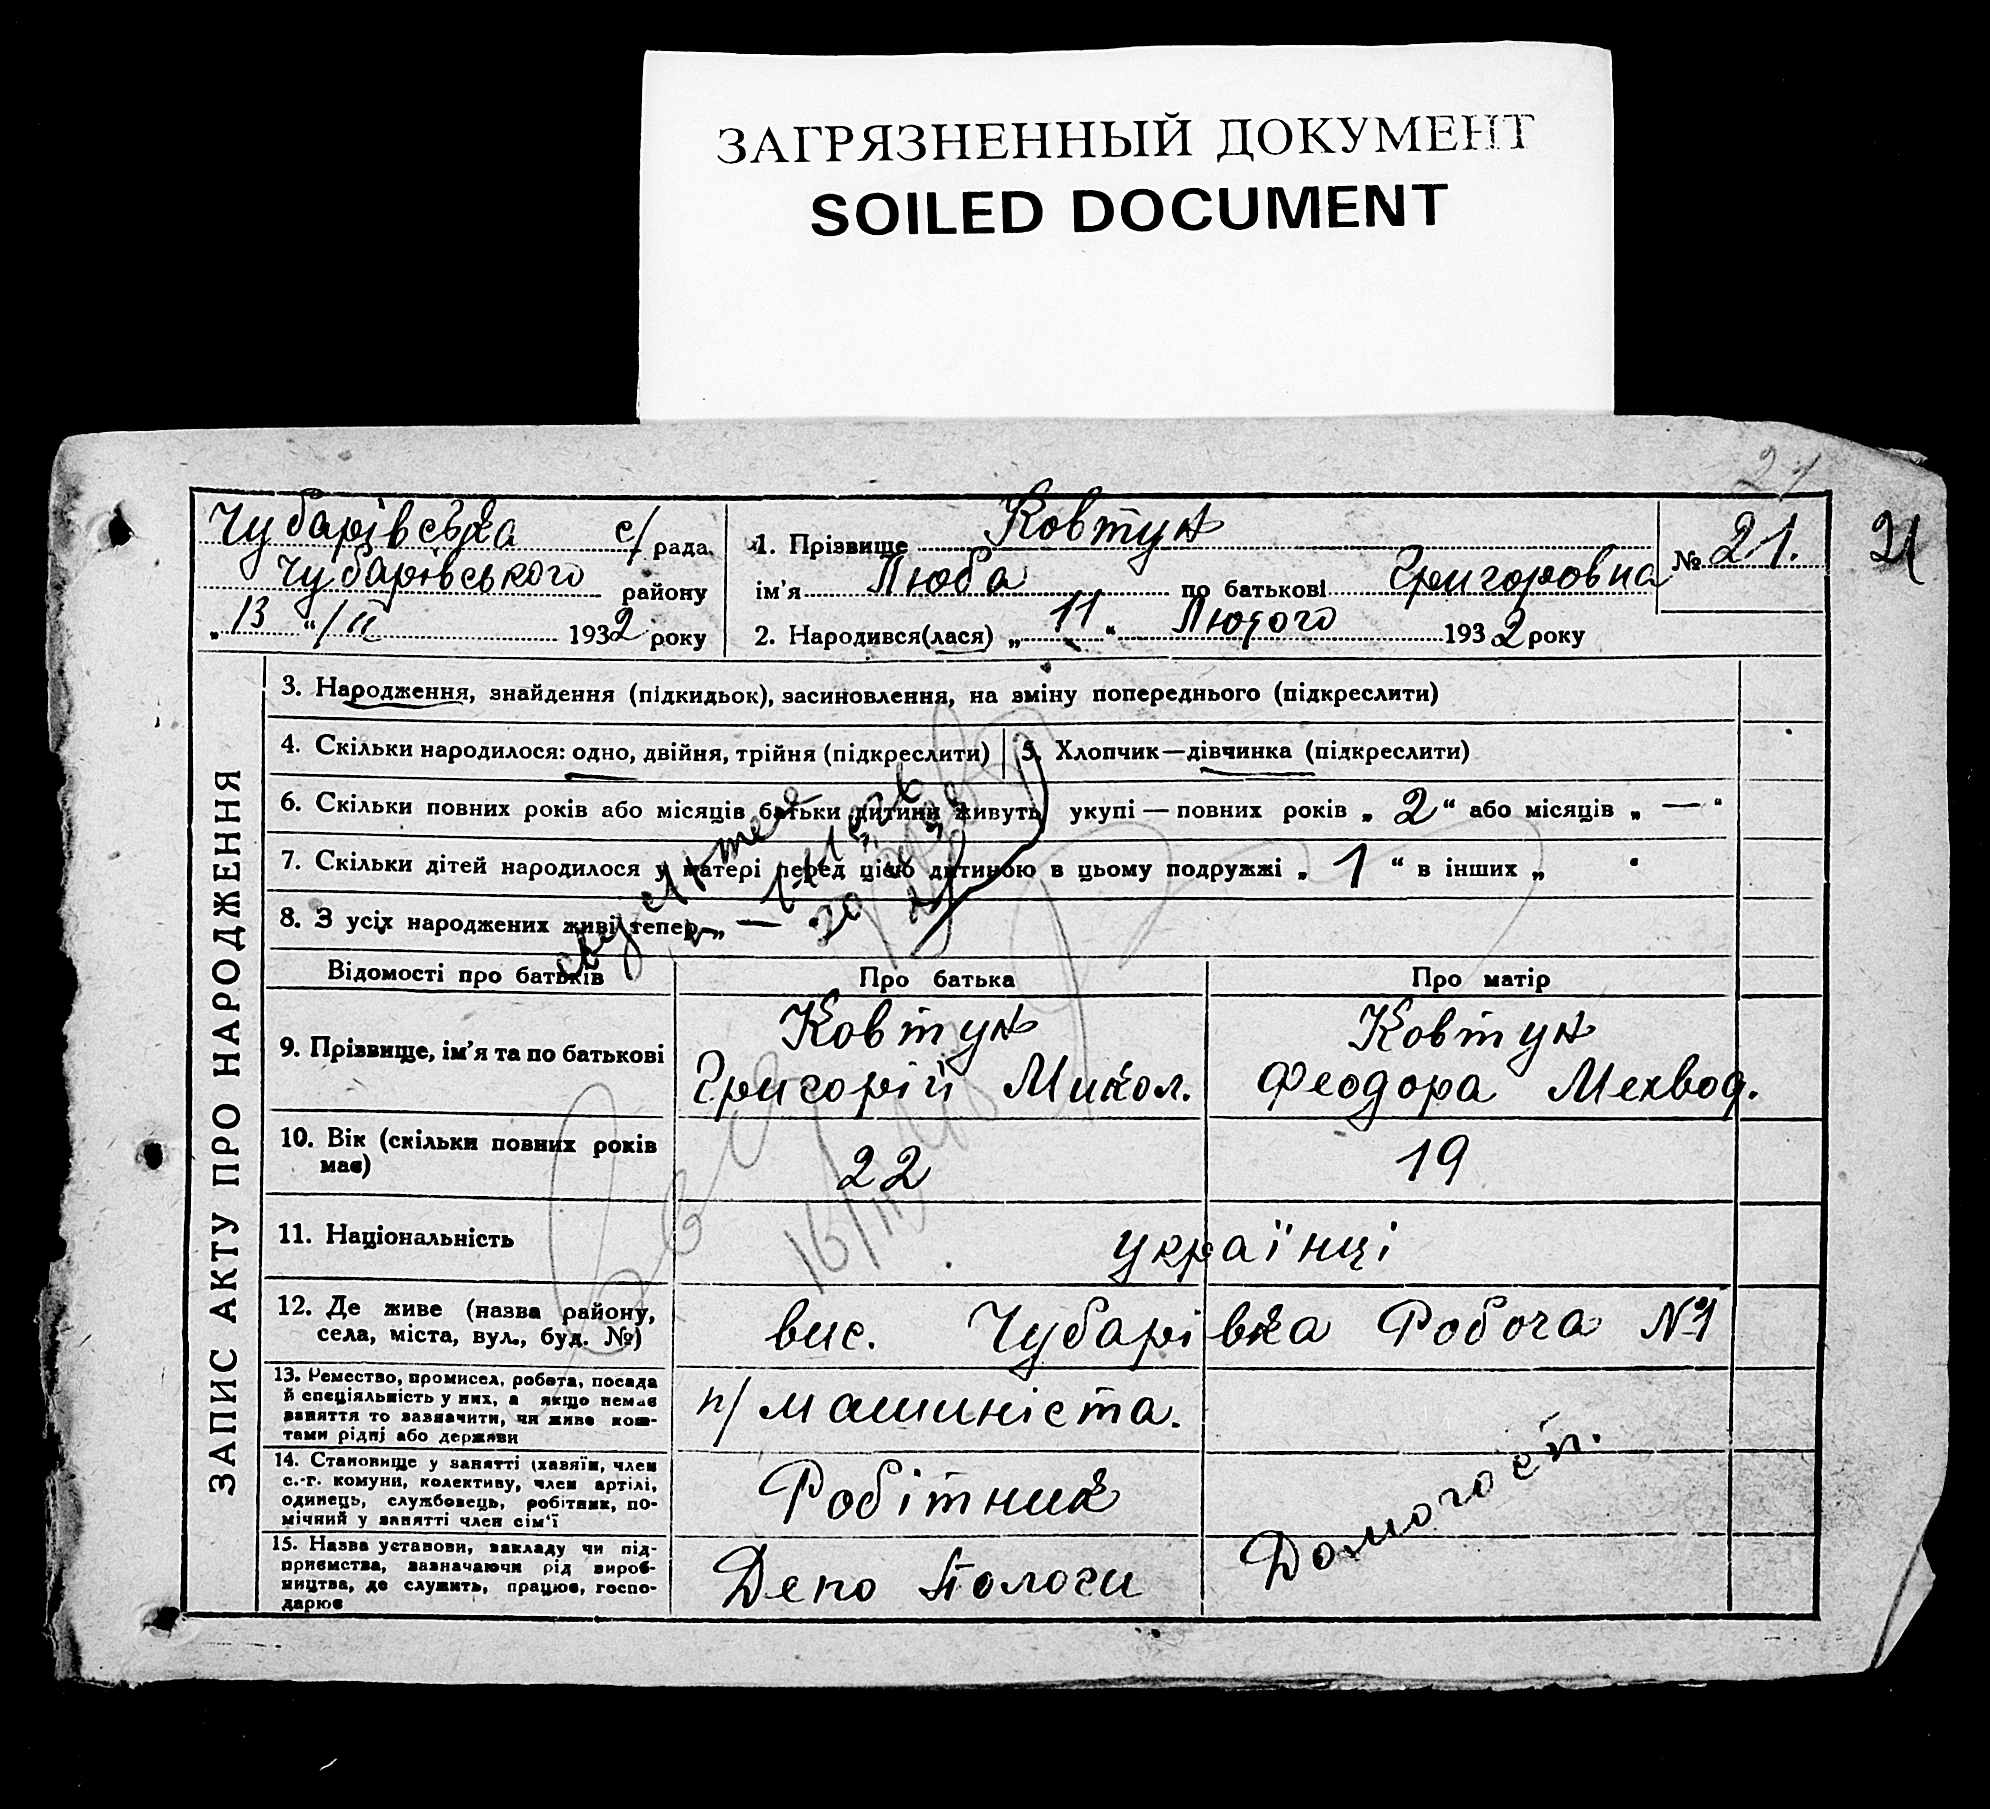 ЗАГРЯЗНЕННЫЙ ДОКУМЕНТ
SOILED DOCUMENT
21
Чубарівська с/рада.
Чубарівського району
„13“/II 1932 року
1. Прізвище Ковтун
ім'я Люба по батькові Григоровна
2. Народився(лася) „11“ Лютого 1932 року
№ 21.
21
ЗАПИС АКТУ ПРО НАРОДЖЕННЯ
3. Народження, знайдення (підкидьок), засиновлення, на зміну попереднього (підкреслити)
4. Скільки народилося: одно, двійня, трійня (підкреслити)
5. Хлопчик—дівчинка (підкреслити)
6. Скільки повних років або місяців батьки дитини живуть укупі — повних років „2“ або місяців „—“
7. Скільки дітей народилося у матері перед цією дитиною в цьому подружжі „1“ в інших „
8. З усіх народжених живі тепер „—
Відомості про батьків
Про батька
Про матір
9. Прізвище, ім'я та по батькові
Ковтун
Григорій Микол.
Ковтун
Феодора Мехвод.
10. Вік (скільки повних років
має)
22
19
11. Національність
українці
12. Де живе (назва району,
села, міста, вул., буд. №)
вис. Чубарівка Робоча №1
13. Ремество, промисел, робота, посада
й спеціяльність у них, а якщо немає
заняття то зазначити, чи живе кош-
тами рідні або держави
п/машиніста.
14. Становище у занятті (хазяїн, член
с.-г. комуни, колективу, член артілі,
одинець, службовець, робітник, по-
мічний у занятті член сім'ї
Робітник
15. Назва установи, закладу чи під-
приємства, зазначаючи рід вироб-
ництва, де служить, працює, госпо-
дарює
Депо Пологи
Домогосп.